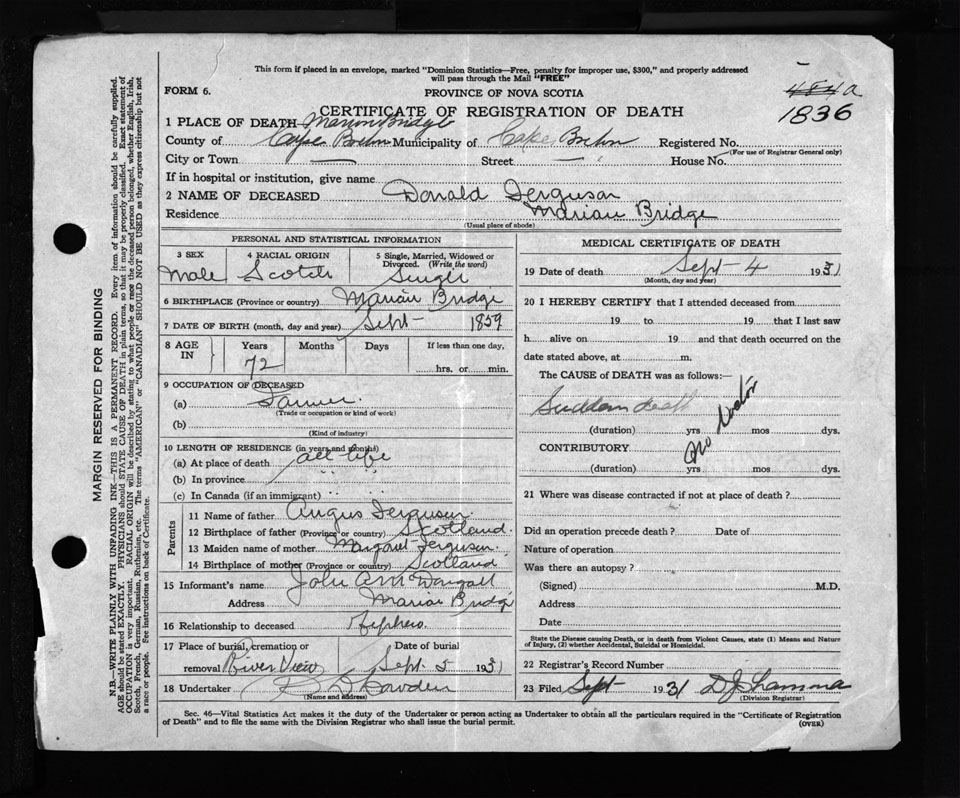 This form if placed in an envelope, marked "Dominion Statistics—Free, penalty for improper use, $300," and properly addressed
will pass through the Mail "FREE"
FORM 6.
PROVINCE OF NOVA SCOTIA
484a
1836
CERTIFICATE OF REGISTRATION OF DEATH
1 PLACE OF DEATH Marion Bridge
County of Cape Breton Municipality of Cape Breton Registered No.
(For use of Registrar General only)
City or Town — Street — House No.
If in hospital or institution, give name
2 NAME OF DECEASED Donald Ferguson
Residence Marion Bridge
(Usual place of abode)
PERSONAL AND STATISTICAL INFORMATION
3 SEX 4 RACIAL ORIGIN 5 Single, Married, Widowed or Divorced. (Write the word)
Male Scotch Single
6 BIRTHPLACE (Province or country) Marion Bridge
7 DATE OF BIRTH (month, day and year) Sept 1859
8 AGE IN Years Months Days If less than one day,
72 hrs. or min.
9 OCCUPATION OF DECEASED
(a) Farmer.
(Trade or occupation or kind of work)
(b)
(Kind of industry)
10 LENGTH OF RESIDENCE (in years and months)
(a) At place of death all life
(b) In province " "
(c) In Canada (if an immigrant) " "
Parents
11 Name of father Angus Ferguson.
12 Birthplace of father (Province or country) Scotland.
13 Maiden name of mother Margaret Ferguson.
14 Birthplace of mother (Province or country) Scotland
15 Informant's name John A McDougall
Address Marion Bridge
16 Relationship to deceased
17 Place of burial, cremation or removal River View Date of burial Sept 5 1931
18 Undertaker
(Name and address)
MEDICAL CERTIFICATE OF DEATH
19 Date of death Sept 4 1931
(Month, day and year)
20 I HEREBY CERTIFY that I attended deceased from
19 to 19 that I last saw
h alive on 19 and that death occurred on the
date stated above, at m.
The CAUSE of DEATH was as follows:—
Sudden death
No doctor
(duration) yrs mos dys.
CONTRIBUTORY
(duration) yrs mos dys.
21 Where was disease contracted if not at place of death?
Did an operation precede death? Date of
Nature of operation
Was there an autopsy?
(Signed) M.D.
Address
Date
State the Disease causing Death, or in death from Violent Causes, state (1) Means and Nature
of Injury, (2) whether Accidental, Suicidal or Homicidal.
22 Registrar's Record Number
23 Filed Sept 1931 D J
(Division Registrar)
Sec. 46—Vital Statistics Act makes it the duty of the Undertaker or person acting as Undertaker to obtain all the particulars required in the "Certificate of Registration
of Death" and to file the same with the Division Registrar who shall issue the burial permit.
(OVER)
MARGIN RESERVED FOR BINDING
N.B.—WRITE PLAINLY WITH UNFADING INK—THIS IS A PERMANENT RECORD. Every item of information should be carefully supplied.
AGE should be stated EXACTLY. PHYSICIANS should STATE CAUSE OF DEATH in plain terms, so that it may be properly classified. Exact statement of
OCCUPATION is very important. RACIAL ORIGIN will be described by stating to what people or race the deceased person belonged, whether English, Irish,
Scotch, French, German, Russian, Ruthenian, etc. The terms "AMERICAN" or "CANADIAN" SHOULD NOT BE USED as they express citizenship but not
a race or people. See instructions on back of Certificate.